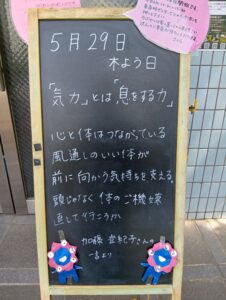 5月29日
木よう日
「気力」とは「息をする力」
心と体はつながっている
風通しのいい体が
前に向かう気持ちを支える。
頭じゃなく体のご機嫌
直して行こうか
加藤登紀子さんの
一言より